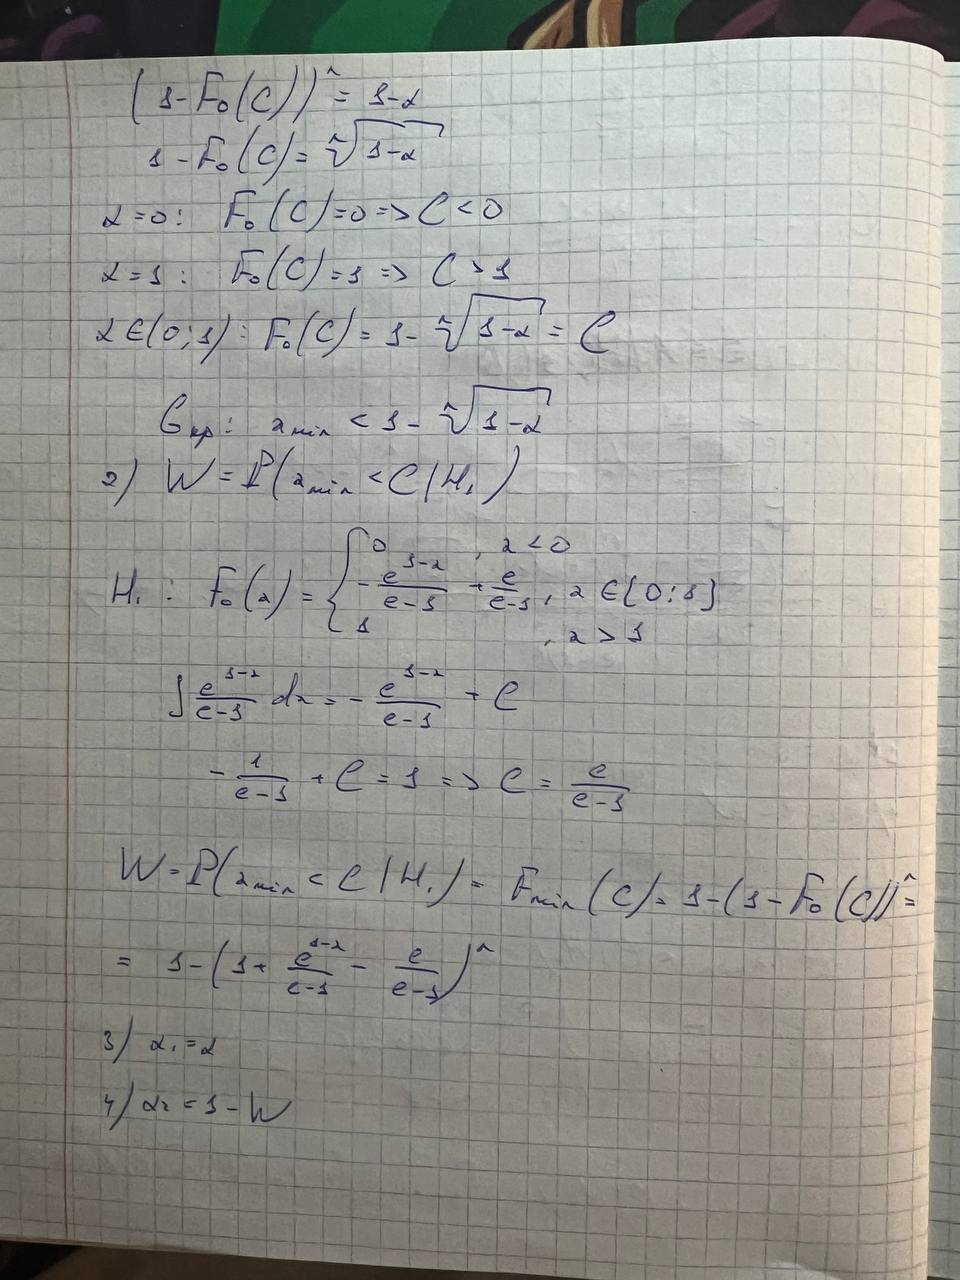 (1-F₀(C))ⁿ = 1-α
1-F₀(C) = ⁿ√(1-α)
α=0: F₀(C)=0 => C<0
α=1: F₀(C)=1 => C>1
α∈(0;1): F₀(C) = 1- ⁿ√(1-α) = C
Gкр: x_min < 1- ⁿ√(1-α)
2) W = P(x_min < C | H₁)
H₁: F₀(x) = { 0, x<0
-e^(1-x)/(e-1) + e/(e-1), x∈[0;1]
1, x>1
∫ e^(1-x)/(e-1) dx = - e^(1-x)/(e-1) + C
- 1/(e-1) + C = 1 => C = e/(e-1)
W = P(x_min < C | H₁) = F_min(C) = 1-(1-F₀(C))ⁿ =
= 1-(1+ e^(1-x)/(e-1) - e/(e-1))ⁿ
3) α₁=α
4) α₂ = 1-W